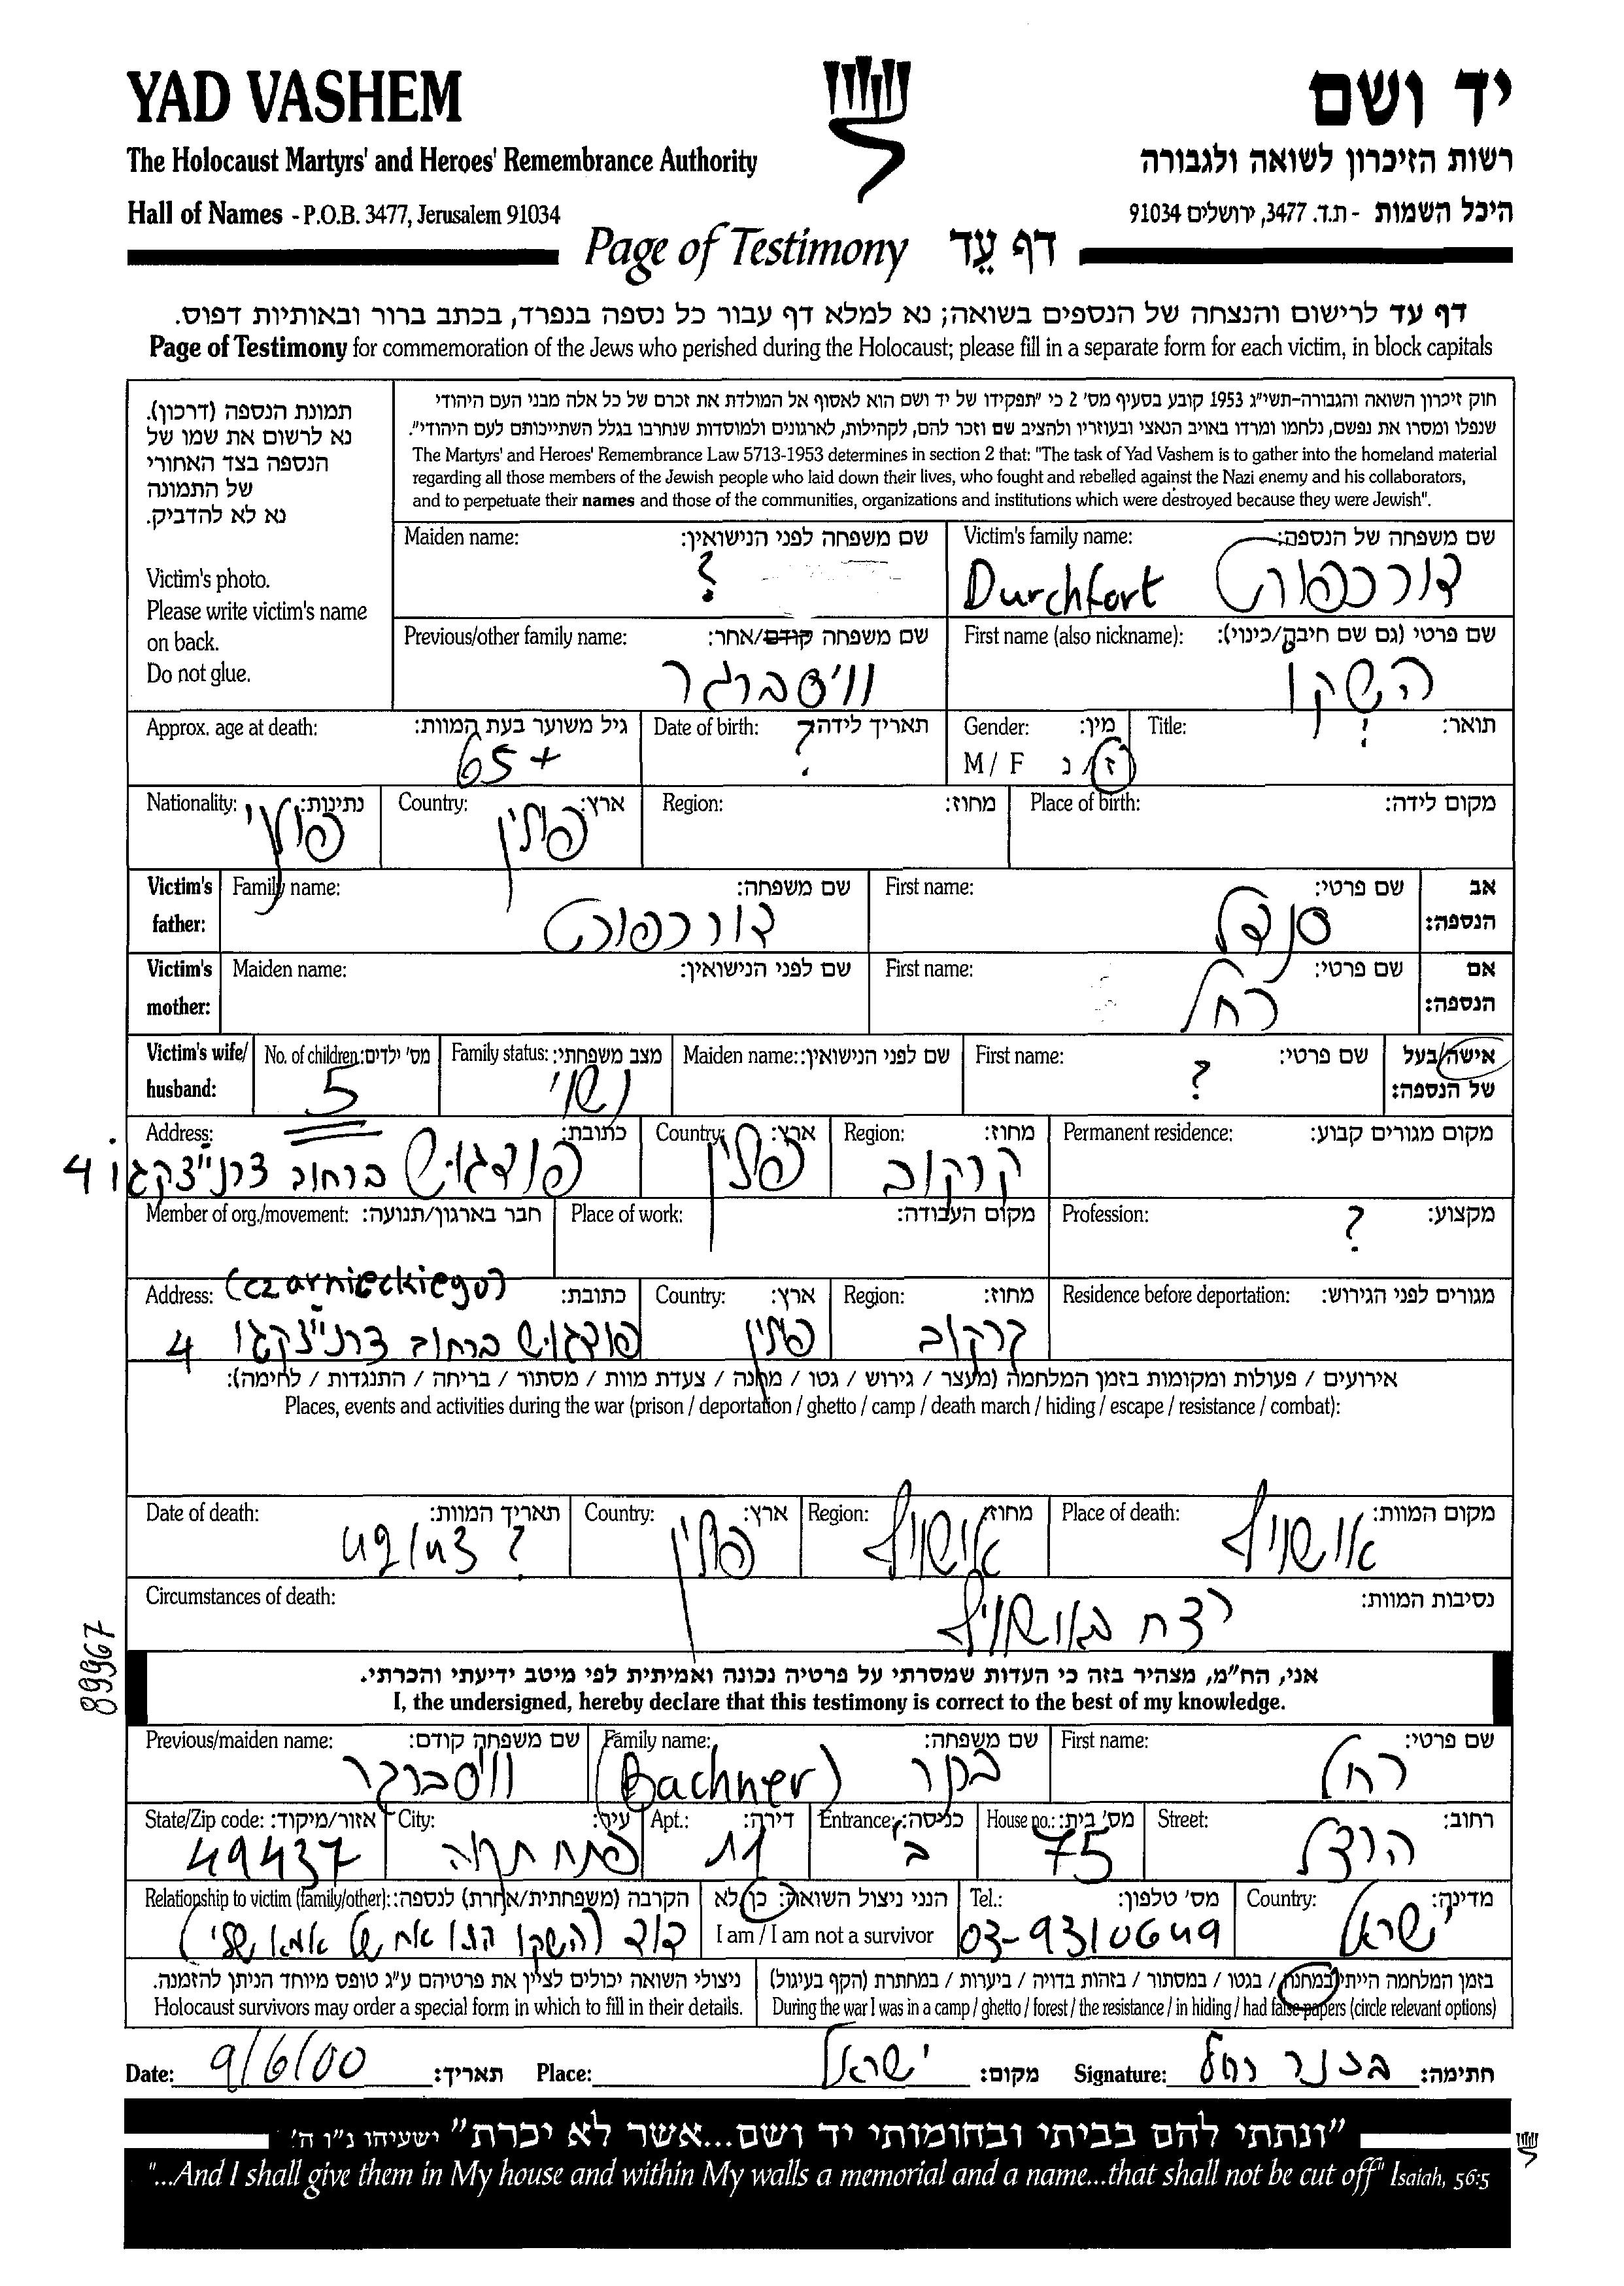 YAD VASHEM
יד ושם
The Holocaust Martyrs' and Heroes' Remembrance Authority
רשות הזיכרון לשואה ולגבורה
Hall of Names - P.O.B. 3477, Jerusalem 91034
היכל השמות - ת.ד. 3477, ירושלים 91034
Page of Testimony דף עֵד
דף עד לרישום והנצחה של הנספים בשואה; נא למלא דף עבור כל נספה בנפרד, בכתב ברור ובאותיות דפוס.
Page of Testimony for commemoration of the Jews who perished during the Holocaust; please fill in a separate form for each victim, in block capitals
תמונת הנספה (דרכון).
נא לרשום את שמו של
הנספה בצד האחורי
של התמונה
נא לא להדביק.
Victim's photo.
Please write victim's name
on back.
Do not glue.
חוק זיכרון השואה והגבורה-תשי"ג 1953 קובע בסעיף מס' 2 כי "תפקידו של יד ושם הוא לאסוף אל המולדת את זכרם של כל אלה מבני העם היהודי
שנפלו ומסרו את נפשם, נלחמו ומרדו באויב הנאצי ובעוזריו ולהציב שם וזכר להם, לקהילות, לארגונים ולמוסדות שנחרבו בגלל השתייכותם לעם היהודי".
The Martyrs' and Heroes' Remembrance Law 5713-1953 determines in section 2 that: "The task of Yad Vashem is to gather into the homeland material
regarding all those members of the Jewish people who laid down their lives, who fought and rebelled against the Nazi enemy and his collaborators,
and to perpetuate their names and those of the communities, organizations and institutions which were destroyed because they were Jewish".
Victim's family name: שם משפחה של הנספה:
Durchfort דורכפורט
Maiden name: שם משפחה לפני הנישואין:
?
First name (also nickname): שם פרטי (גם שם חיבה/כינוי):
השקו
Previous/other family name: שם משפחה קודם/אחר:
וויסברגר
Title: תואר:
?
Gender: מין:
M / F ז / נ
Date of birth: תאריך לידה:
?
Approx. age at death: גיל משוער בעת המוות:
65+
Place of birth: מקום לידה:
Region: מחוז:
Country: ארץ:
פולין
Nationality: נתינות:
פולני
Victim's father: אב הנספה:
First name: שם פרטי:
סנדל
Family name: שם משפחה:
דורכפורט
Victim's mother: אם הנספה:
First name: שם פרטי:
רחל
Maiden name: שם לפני הנישואין:
Victim's wife/ husband: אישה/בעל של הנספה:
First name: שם פרטי:
?
Maiden name: שם לפני הנישואין:
Family status: מצב משפחתי:
נשוי
No. of children: מס' ילדים:
5
Permanent residence: מקום מגורים קבוע:
Region: מחוז:
קרקוב
Country: ארץ:
פולין
Address: כתובת:
ברחוב 4
Profession: מקצוע:
?
Place of work: מקום העבודה:
Member of org./movement: חבר בארגון/תנועה:
Residence before deportation: מגורים לפני הגירוש:
Region: מחוז:
קרקוב
Country: ארץ:
פולין
Address: כתובת:
(czarnieckiego)
ברחוב 4
אירועים / פעולות ומקומות בזמן המלחמה (מעצר / גירוש / גטו / מחנה / צעדת מוות / מסתור / בריחה / התנגדות / לחימה):
Places, events and activities during the war (prison / deportation / ghetto / camp / death march / hiding / escape / resistance / combat):
Place of death: מקום המוות:
אושויץ
Region: מחוז:
אושויץ
Country: ארץ:
פולין
Date of death: תאריך המוות:
?
Circumstances of death: נסיבות המוות:
באושויץ
89967
אני, הח"מ, מצהיר בזה כי העדות שמסרתי על פרטיה נכונה ואמיתית לפי מיטב ידיעתי והכרתי.
I, the undersigned, hereby declare that this testimony is correct to the best of my knowledge.
First name: שם פרטי:
רחל
Family name: שם משפחה:
(Bachner)
Previous/maiden name: שם משפחה קודם:
וויסברגר
Street: רחוב:
הרצל
House no.: מס' בית:
75
Entrance: כניסה:
ב
Apt.: דירה:
11
City: עיר:
פתח תקוה
State/Zip code: אזור/מיקוד:
49437
Country: מדינה:
ישראל
Tel.: מס' טלפון:
03-9310649
הנני ניצול השואה: כן לא
I am / I am not a survivor
Relationship to victim (family/other): הקרבה (משפחתית/אחרת) לנספה:
דוד (השקו הוא אח של אמא שלי)
בזמן המלחמה הייתי במחנה / בגטו / במסתור / בזהות בדויה / ביערות / במחתרת (הקף בעיגול)
During the war I was in a camp / ghetto / forest / the resistance / in hiding / had false papers (circle relevant options)
ניצולי השואה יכולים לציין את פרטיהם ע"ג טופס מיוחד הניתן להזמנה.
Holocaust survivors may order a special form in which to fill in their details.
Date: 9/6/00 תאריך: Place: ישראל מקום: Signature: בכנר רחל חתימה:
"ונתתי להם בביתי ובחומותי יד ושם...אשר לא יכרת" ישעיהו נ"ו ה'
"...And I shall give them in My house and within My walls a memorial and a name...that shall not be cut off" Isaiah, 56:5